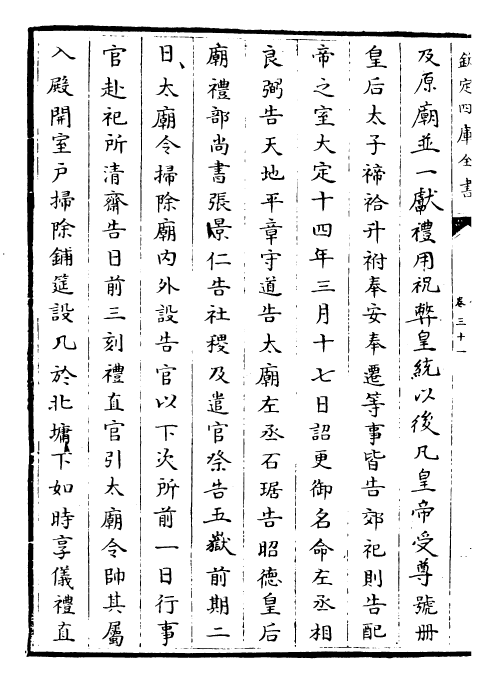 欽定四庫全書
卷三十一
及原廟並一獻禮用祝幣皇統以後凡皇帝受尊號冊
皇后太子禘祫升祔奉安奉遷等事皆告郊祀則告配
帝之室大定十四年三月十七日詔更御名命左丞相
良弼告天地平章守道告太廟左丞石琚告昭德皇后
廟禮部尚書張景仁告社稷及遣官祭告五嶽前期二
日太廟令掃除廟內外設告官以下次所前一日行事
官赴祀所清齋告日前三刻禮直官引太廟令帥其屬
入殿開室戶掃除鋪筵設几於北墉下如時享儀禮直